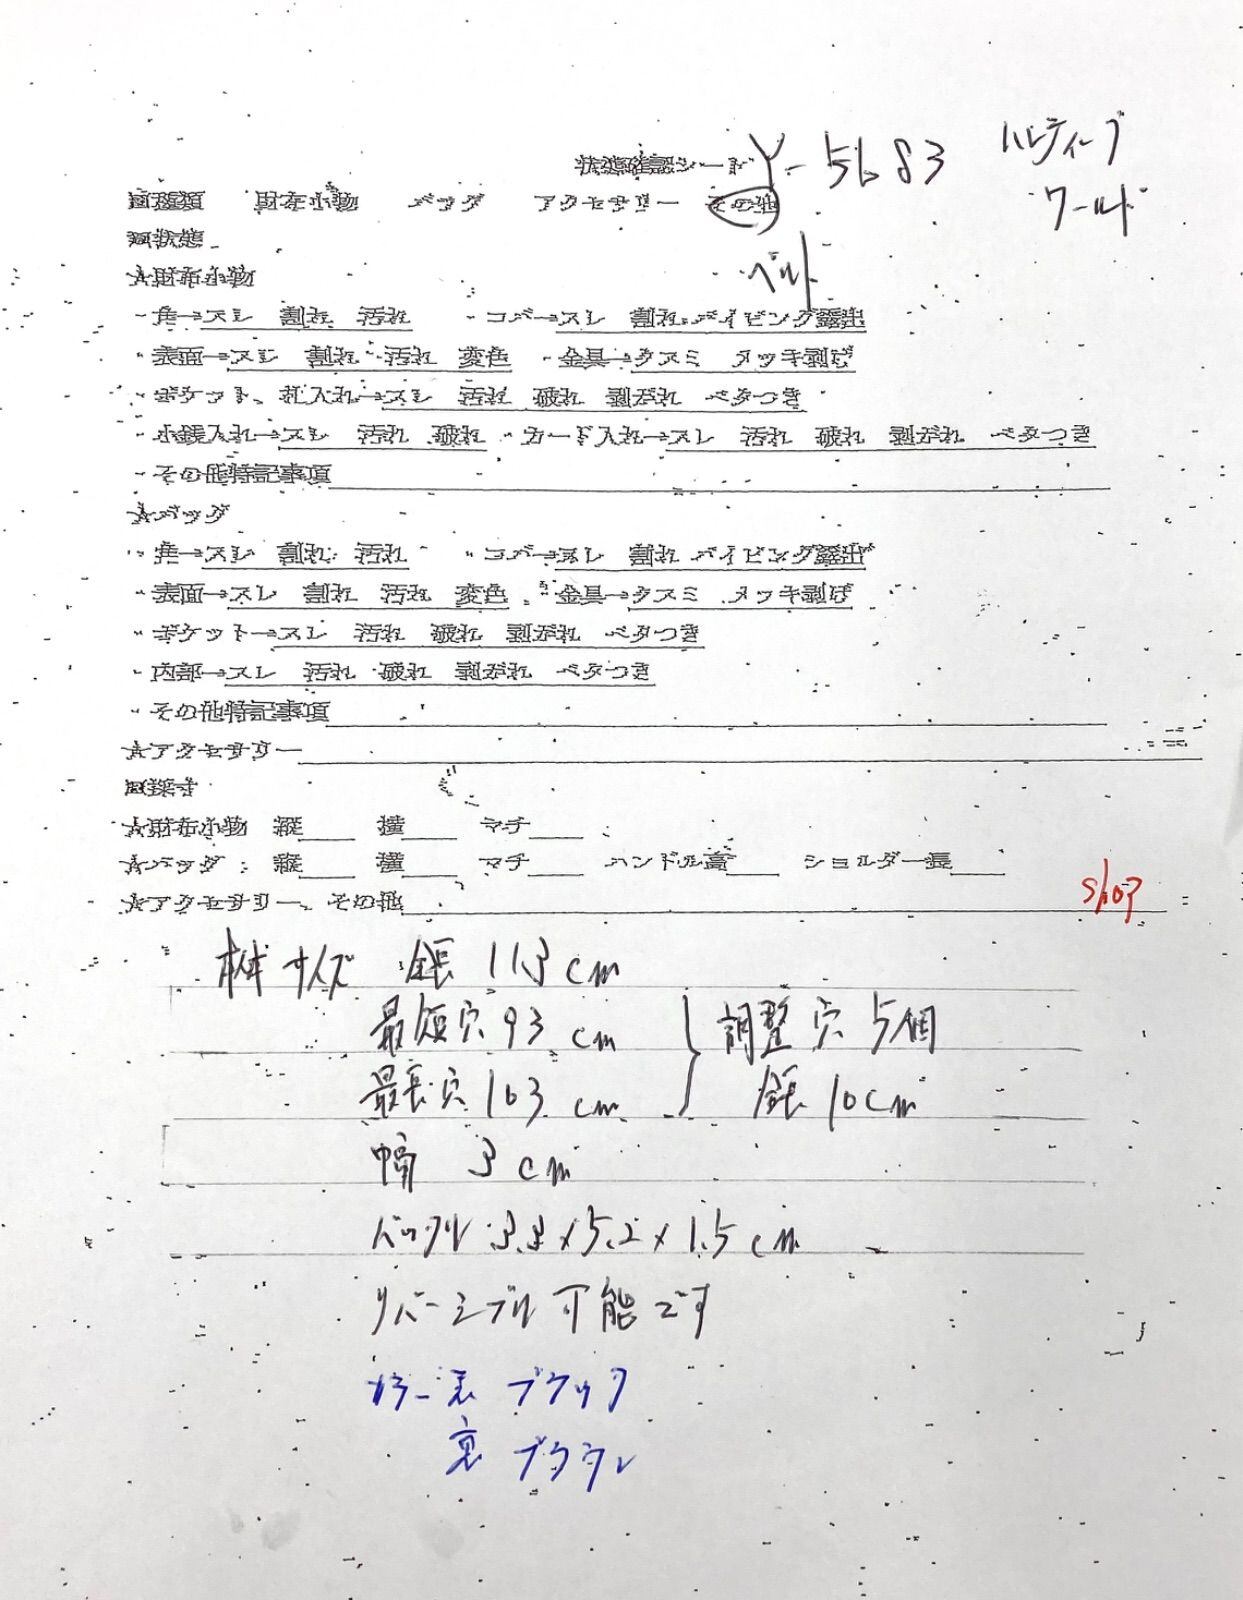 状態確認シート Y-5683 ハンティーブ
ワールド
■種類 財布小物 バッグ アクセサリー その他
■状態
ベルト
★財布小物
・角→スレ 割れ 汚れ ・コバ→スレ 割れ パイピング露出
・表面→スレ 割れ 汚れ 変色 ・金具→クスミ メッキ剥げ
・ポケット、札入れ→スレ 汚れ 破れ 剥がれ ベタつき
・小銭入れ→スレ 汚れ 破れ ・カード入れ→スレ 汚れ 破れ 剥がれ ベタつき
・その他特記事項
★バッグ
・角→スレ 割れ 汚れ ・コバ→スレ 割れ パイピング露出
・表面→スレ 割れ 汚れ 変色 ・金具→クスミ メッキ剥げ
・ポケット→スレ 汚れ 破れ 剥がれ ベタつき
・内部→スレ 汚れ 破れ 剥がれ ベタつき
・その他特記事項
★アクセサリー
■採寸
★財布小物 縦 横 マチ
★バッグ 縦 横 マチ ハンドル高 ショルダー長
★アクセサリー、その他
本体サイズ 全長 113cm
最短穴 93cm 調整穴 5個
最長穴 103cm 全長 10cm
幅 3cm
バックル 3.3×5.2×1.5cm
リバーシブル可能です
カラー 表 ブラック
裏 ブラウン